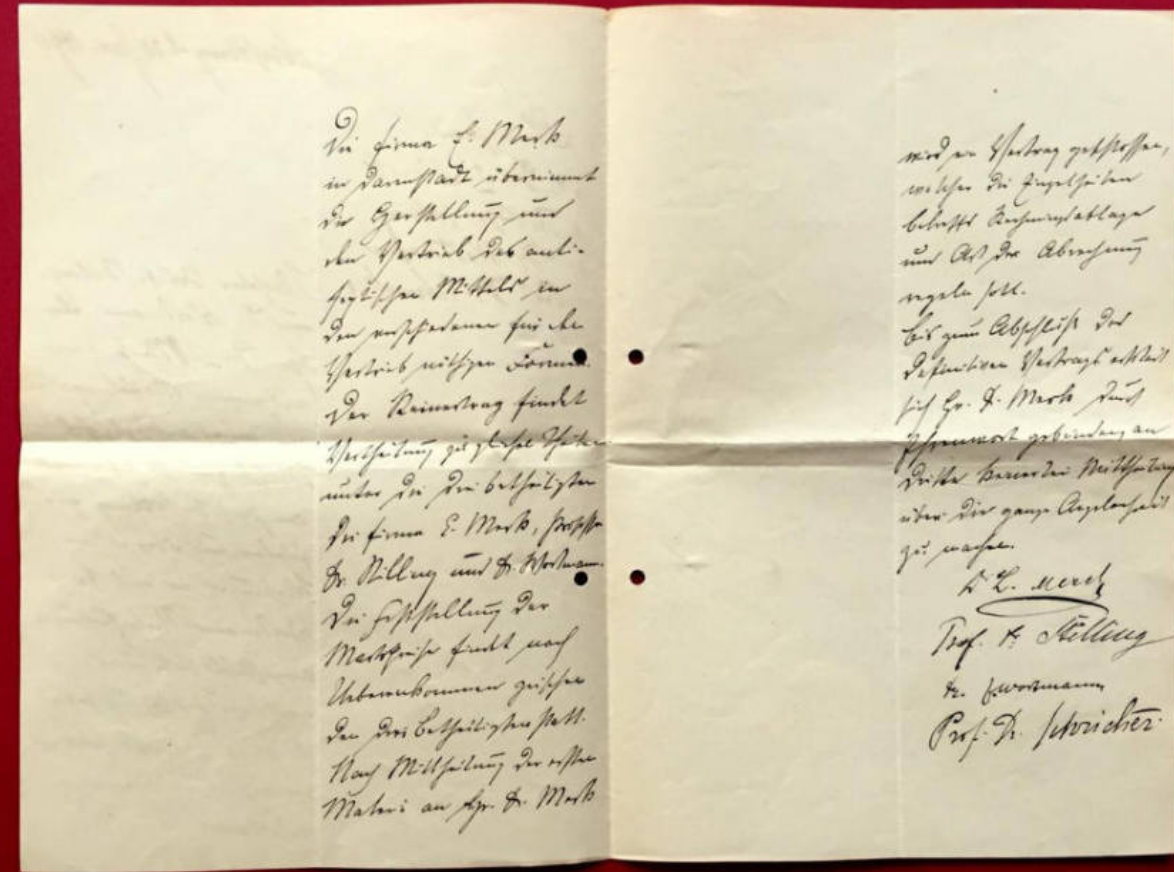 Die Firma E. Merck
in Darmstadt übernimmt
die Herstellung und
den Vertrieb des anti-
septischen Mittels in
den verschiedenen für den
Vertrieb nöthigen Formen.
Der Reinertrag findet
Vertheilung zu gleichen Theilen
unter die drei Betheiligten
Die Firma E. Merck, Professor
Dr. Stilling und Dr. Wortmann.
Die Feststellung der
Marktpreise findet nach
Uebereinkommen zwischen
den drei Betheiligten statt.
Nach Mittheilung der ersten
Materie an Hr. Dr. Merck
wird ein Vertrag geschlossen,
welcher die Einzelheiten
betreffs Rechnungsablage
und Art der Abrechnung
regeln soll.
Bis zum Abschluß des
definitiven Vertrags erklärt
sich Hr. Dr. Merck durch
Ehrenwort gebunden, an
Dritte keinerlei Mittheilung
über die ganze Angelegenheit
zu machen.
Dr. L. Merck
Prof. Dr. Stilling
Dr. J. Wortmann
Prof. Dr. Schricker.